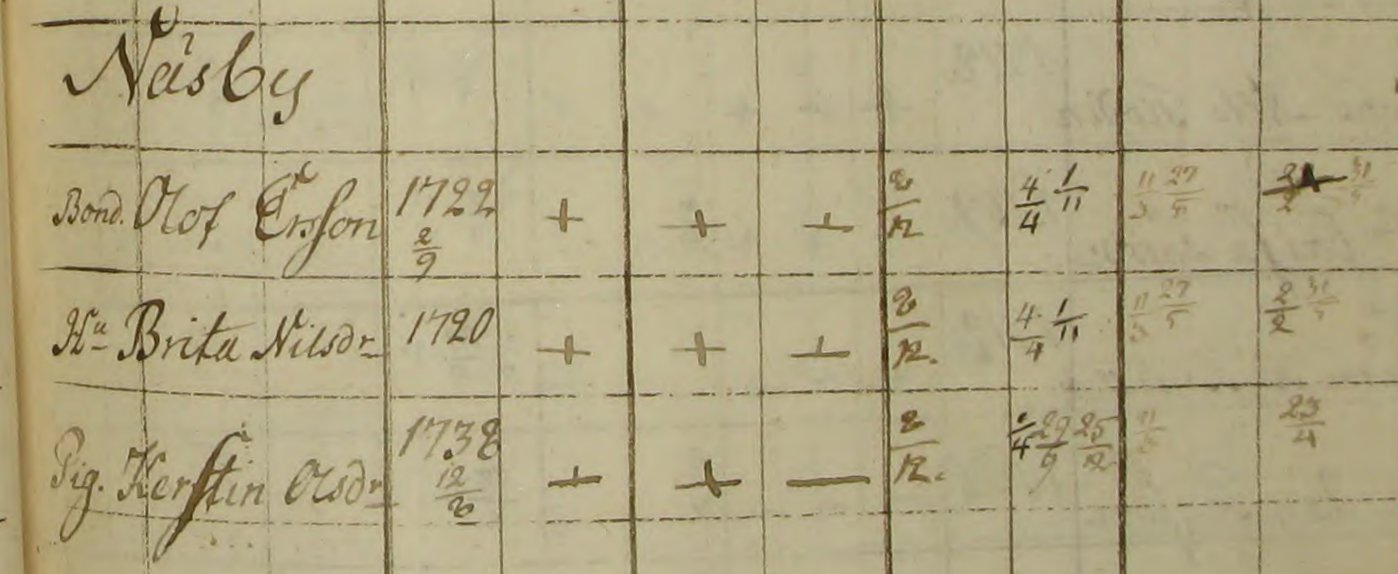 Näsby
Bond. Olof Ersson 1722 2/9 + + + 8/12 4/4 1/11 11/3 27/5 2/2 31/5
Hu Brita Nilsdr 1720 + + + 8/12. 4/4 1/11 11/3 27/5 2/2 31/5
Pig. Kerstin Olsdr 1738 12/8 + + — 8/12. 4/4 29/9 25/12 11/3 23/4